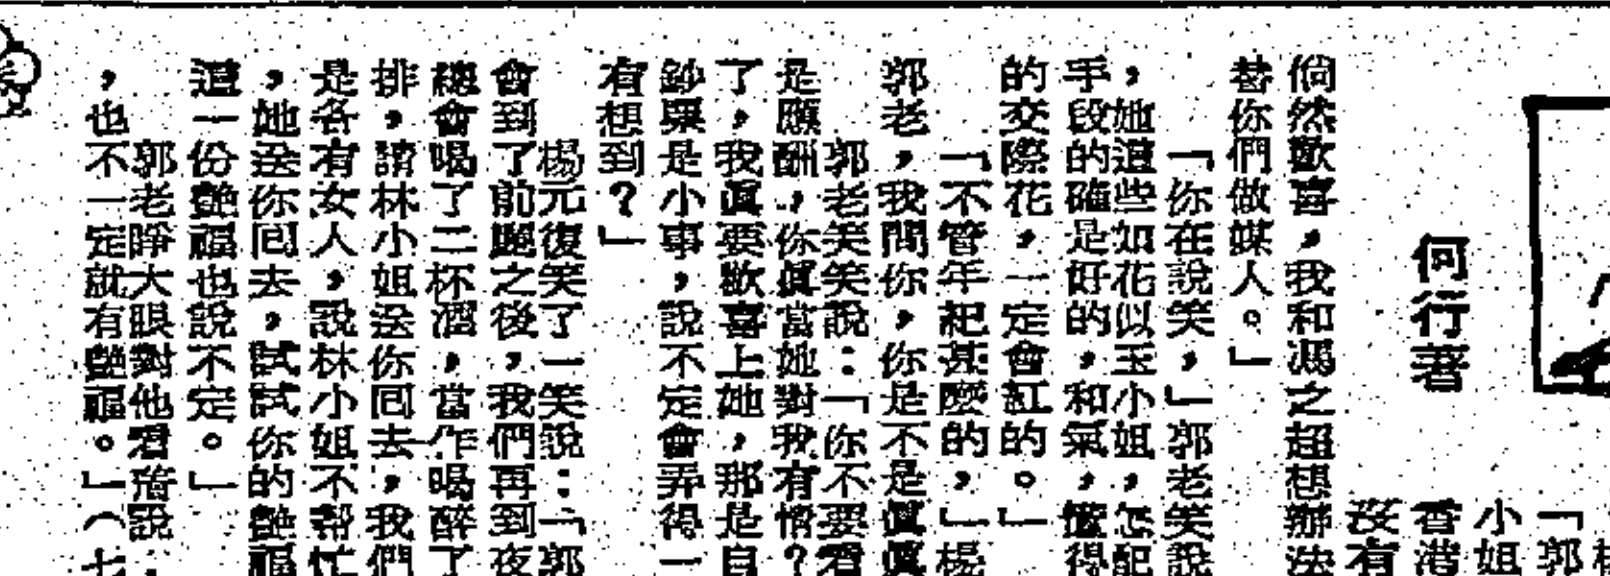 何行著
「郭
小姐
香港
沒有
倘然歡喜，我和馮之超想辦法
替你們做媒人。」
「你在說笑，」郭老笑說
，她這些如花似玉小姐，怎配
手段的確是好的，和氣，懂得
的交際花，一定會紅的。」
「不管年紀甚麼的，」楊
郭老，我問你，你是不是眞眞
郭老笑笑說：「你不要看
是應酬，你眞當她對我有情？
了，我眞要歡喜上她，那是自
鈔票是小事，說不定會弄得一
有想到？」
楊元復笑了一笑說：「郭
會到了前廳之後，我們再到夜
總會喝了二杯酒，當作喝醉了
排，請林小姐送你囘去，我們
是各有女人，說林小姐不幫忙
，她送你囘去，試試你的艷福
這一份艷福也說不定。」
郭老睜大眼對他看着說：
，也不一定就有艷福。」（七